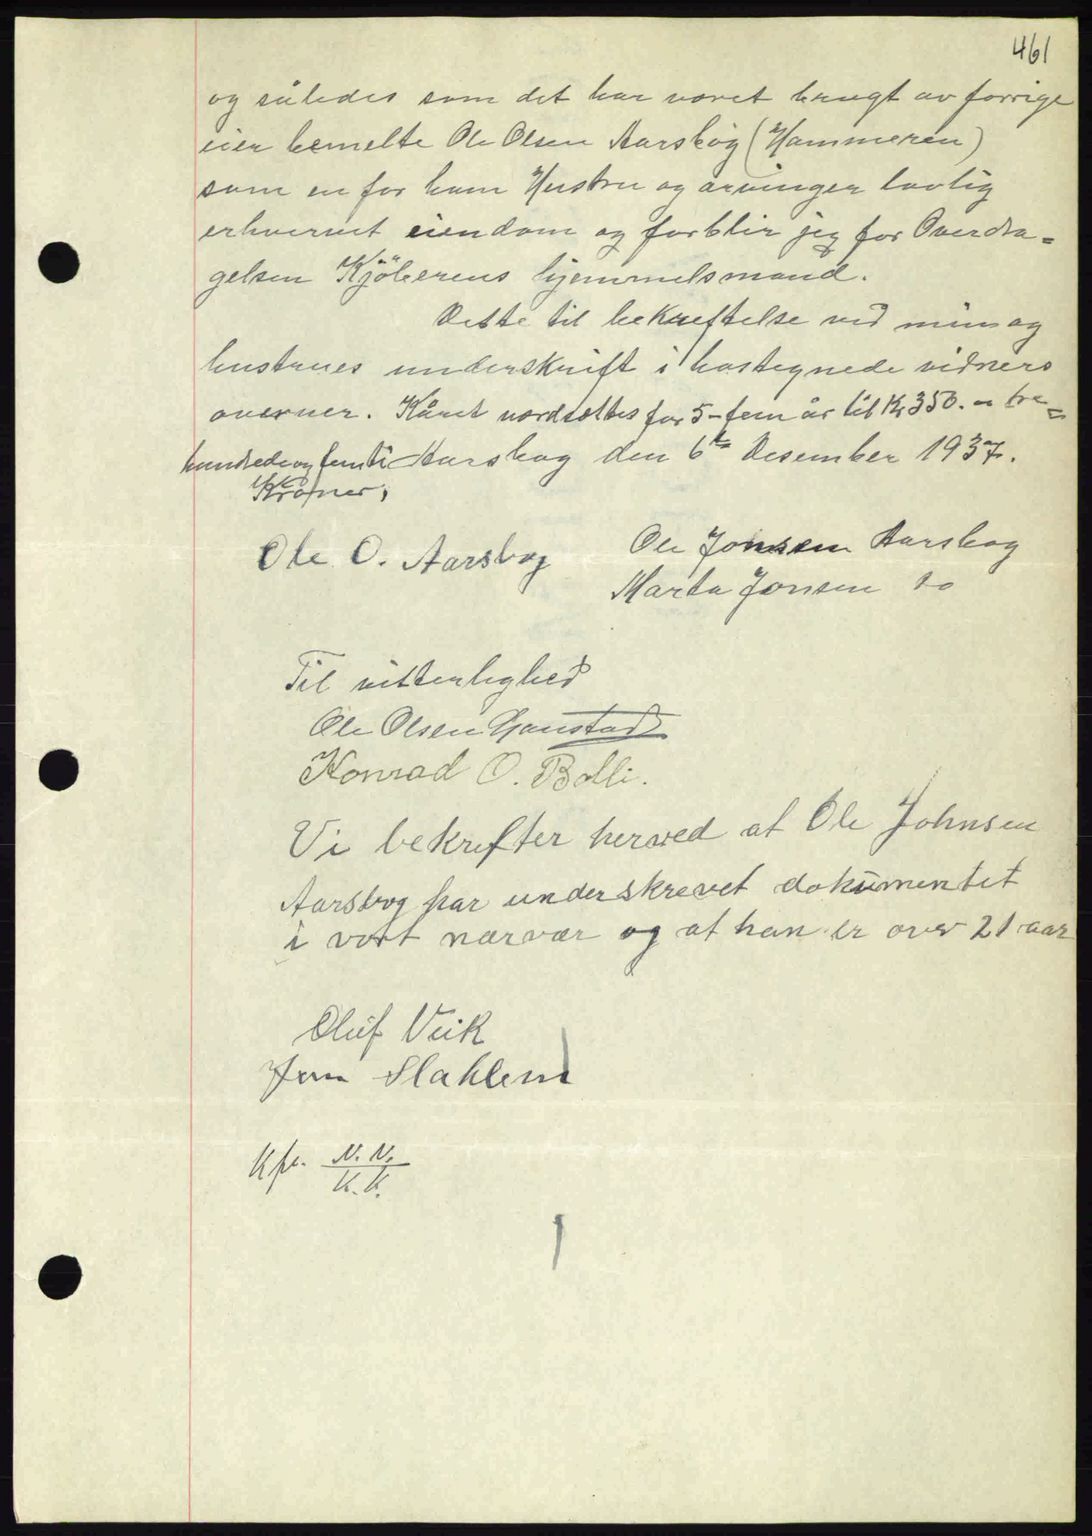 461
og således som det har været brugt av forrige
eier bemelte Ole Olsen Aarsbog (Hammeren)
som en for ham Hustru og arvinger lovlig
erhvervet eiendom og forblir jeg for Overdra-
gelsen Kjöberens hjemmelsmand.
Dette til bekreftelse ved min og
hustrues underskrift i hostegnede vidners
overvær. Kåret værdsættes for 5-fem år til Kr 350.- tre-
hundrede og femti Aarsbog den 6te Desember 1937.
Kroner,
Ole O. Aarsbog
Ole Jonsen Aarsbog
Marta Jonsen do
Til vitterlighed
Ole Olsen Gaustad
Konrad O. Bolli.
Vi bekrefter herved at Ole Johnsen
Aarsbog har underskrevet dokumentet
i vort nærvær og at han er over 21 aar
Oluf Veik
Jem Stahlem
Kfr. N. N.
K. K.